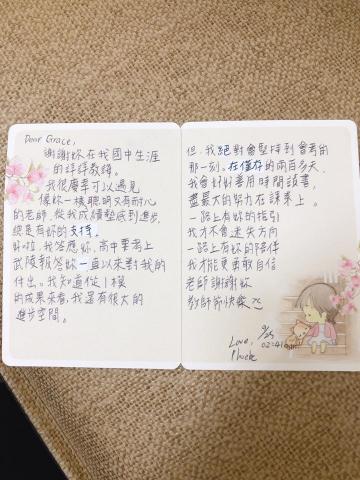 Dear Grace,
謝謝妳在我國中生涯
的諄諄教誨。
我很慶幸可以遇見
像妳一樣聰明又有耐心
的老師,從我成績墊底到進步,
總是有妳的支持。
好啦,我答應妳,高中要考上
武陵報答妳一直以來對我的
付出。我知道從1模
的成果來看,我還有很大的
進步空間。
但,我絕對會堅持到會考的
那一刻。在僅存的兩百多天,
我會好好善用時間讀書,
盡最大的努力在課業上。
一路上有妳的指引
我才不會迷失方向
一路上有妳的陪伴
我才能更勇敢自信
老師謝謝妳
教師節快樂
Love,
Phoebe
9/25
02:41am